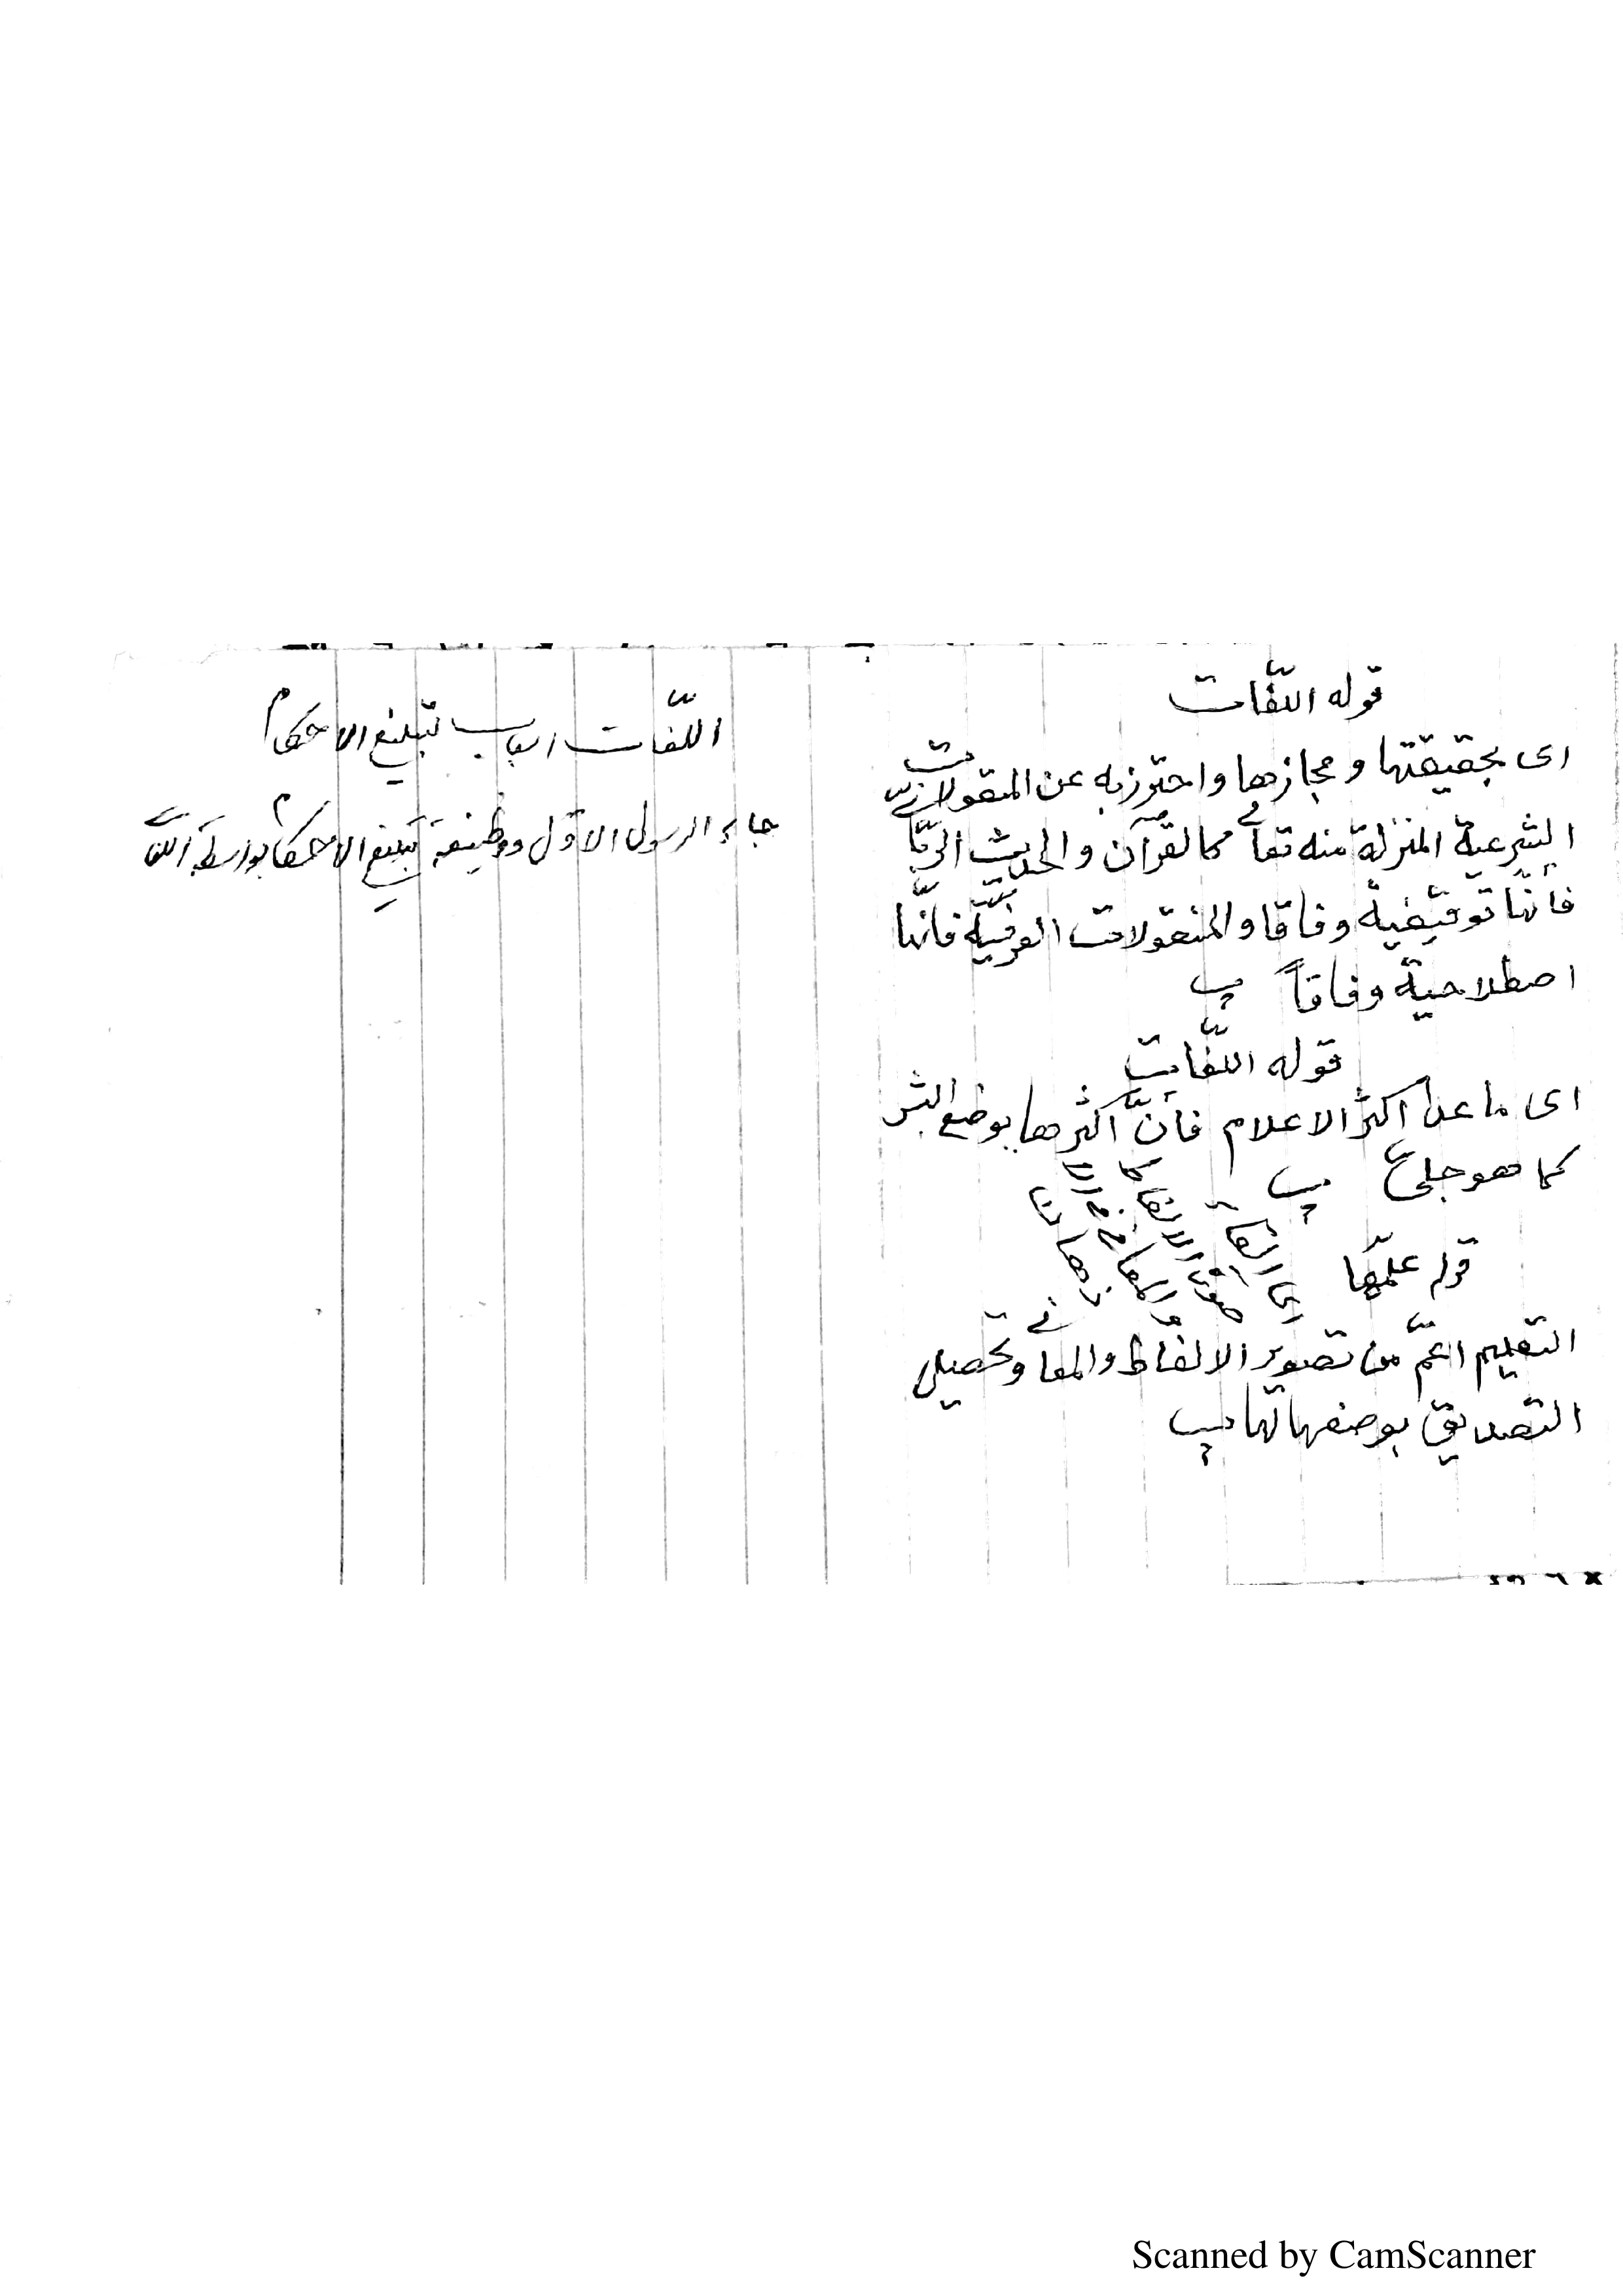 قوله اللّغات
اى بحقيقتها ومجازها واحترز به عن المنقولات
الشرعية المنزلة منه تعا كالقرآن والحديث الربّا
فانّها توقيفية وفاقا والمنقولات العرفيّة فانّها
اصطلاحية وفاقاً
قوله اللّغات
اى ما عدا اكثر الاعلام فانّ اكثرها بوضع البشر
كما هو جلى
اى اللغات
الالفاظ
والمعا
قوله علّمها
التعليم اعمّ من تصوير الالفاظ والمعا وتحصيل
التصديق بوضعها لها
اللّغات اسباب تبليغ الاحكام
جاء الرسول الاوّل ووظيفة تبليغ الاحكام بواسطة اللغا
Scanned by CamScanner